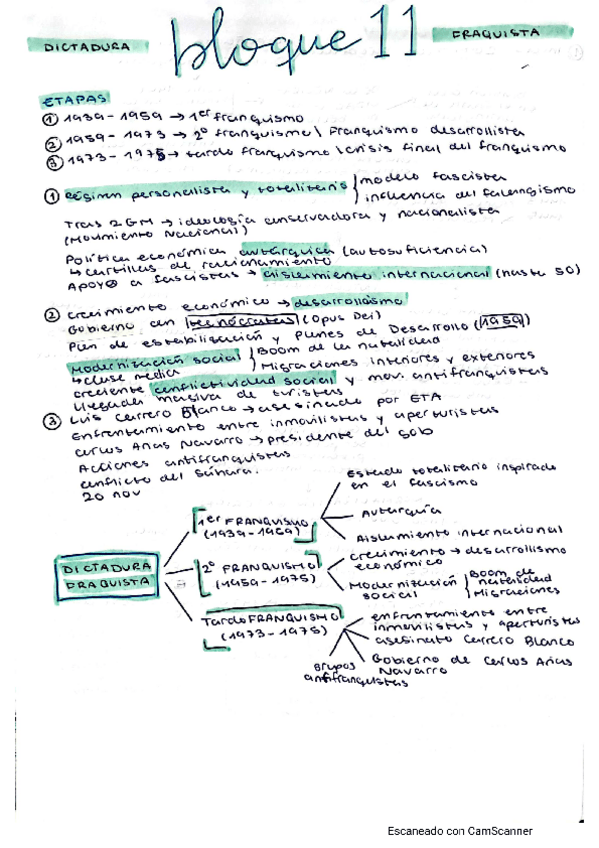 DICTADURA bloque 11 FRAQUISTA
ETAPAS
① 1939 - 1959 → 1er franquismo
② 1959 - 1973 → 2º franquismo \ Franquismo desarrollista
③ 1973 - 1975 → tardo franquismo \ crisis final del franquismo
① Régimen personalista y totalitario / modelo fascista
\ influencia del falangismo
Tras 2GM → ideología conservadora y nacionalista
(Movimiento Nacional)
Política económica autárquica (autosuficiencia)
↳ cartillas de racionamiento
Apoyo a fascistas → aislamiento internacional (hasta 50)
② Crecimiento económico → desarrollismo
Gobierno con tecnócratas (Opus Dei)
Plan de estabilización y Planes de Desarrollo (1959)
Modernización social / Boom de la natalidad
↳ clase media \ Migraciones interiores y exteriores
creciente conflictividad social y mov. antifranquistas
llegada masiva de turistas
③ Luis Carrero Blanco → asesinado por ETA
Enfrentamiento entre inmovilistas y aperturistas
Carlos Arias Navarro → presidente del gob
Acciones antifranquistas
conflicto del Sáhara.
20 nov
DICTADURA
DRAQUISTA
1er FRANQUISMO
(1939-1959)
Estado totalitario inspirado
en el fascismo
Autarquía
Aislamiento internacional
2º FRANQUISMO
(1959-1975)
crecimiento → desarrollismo
económico
Modernización / Boom de
social natalidad
\ Migraciones
Tardo FRANQUISMO
(1973-1975)
enfrentamiento entre
inmovilistas y aperturistas
asesinato Carrero Blanco
Gobierno de Carlos Arias
Navarro
Grupos
antifranquistas
Escaneado con CamScanner